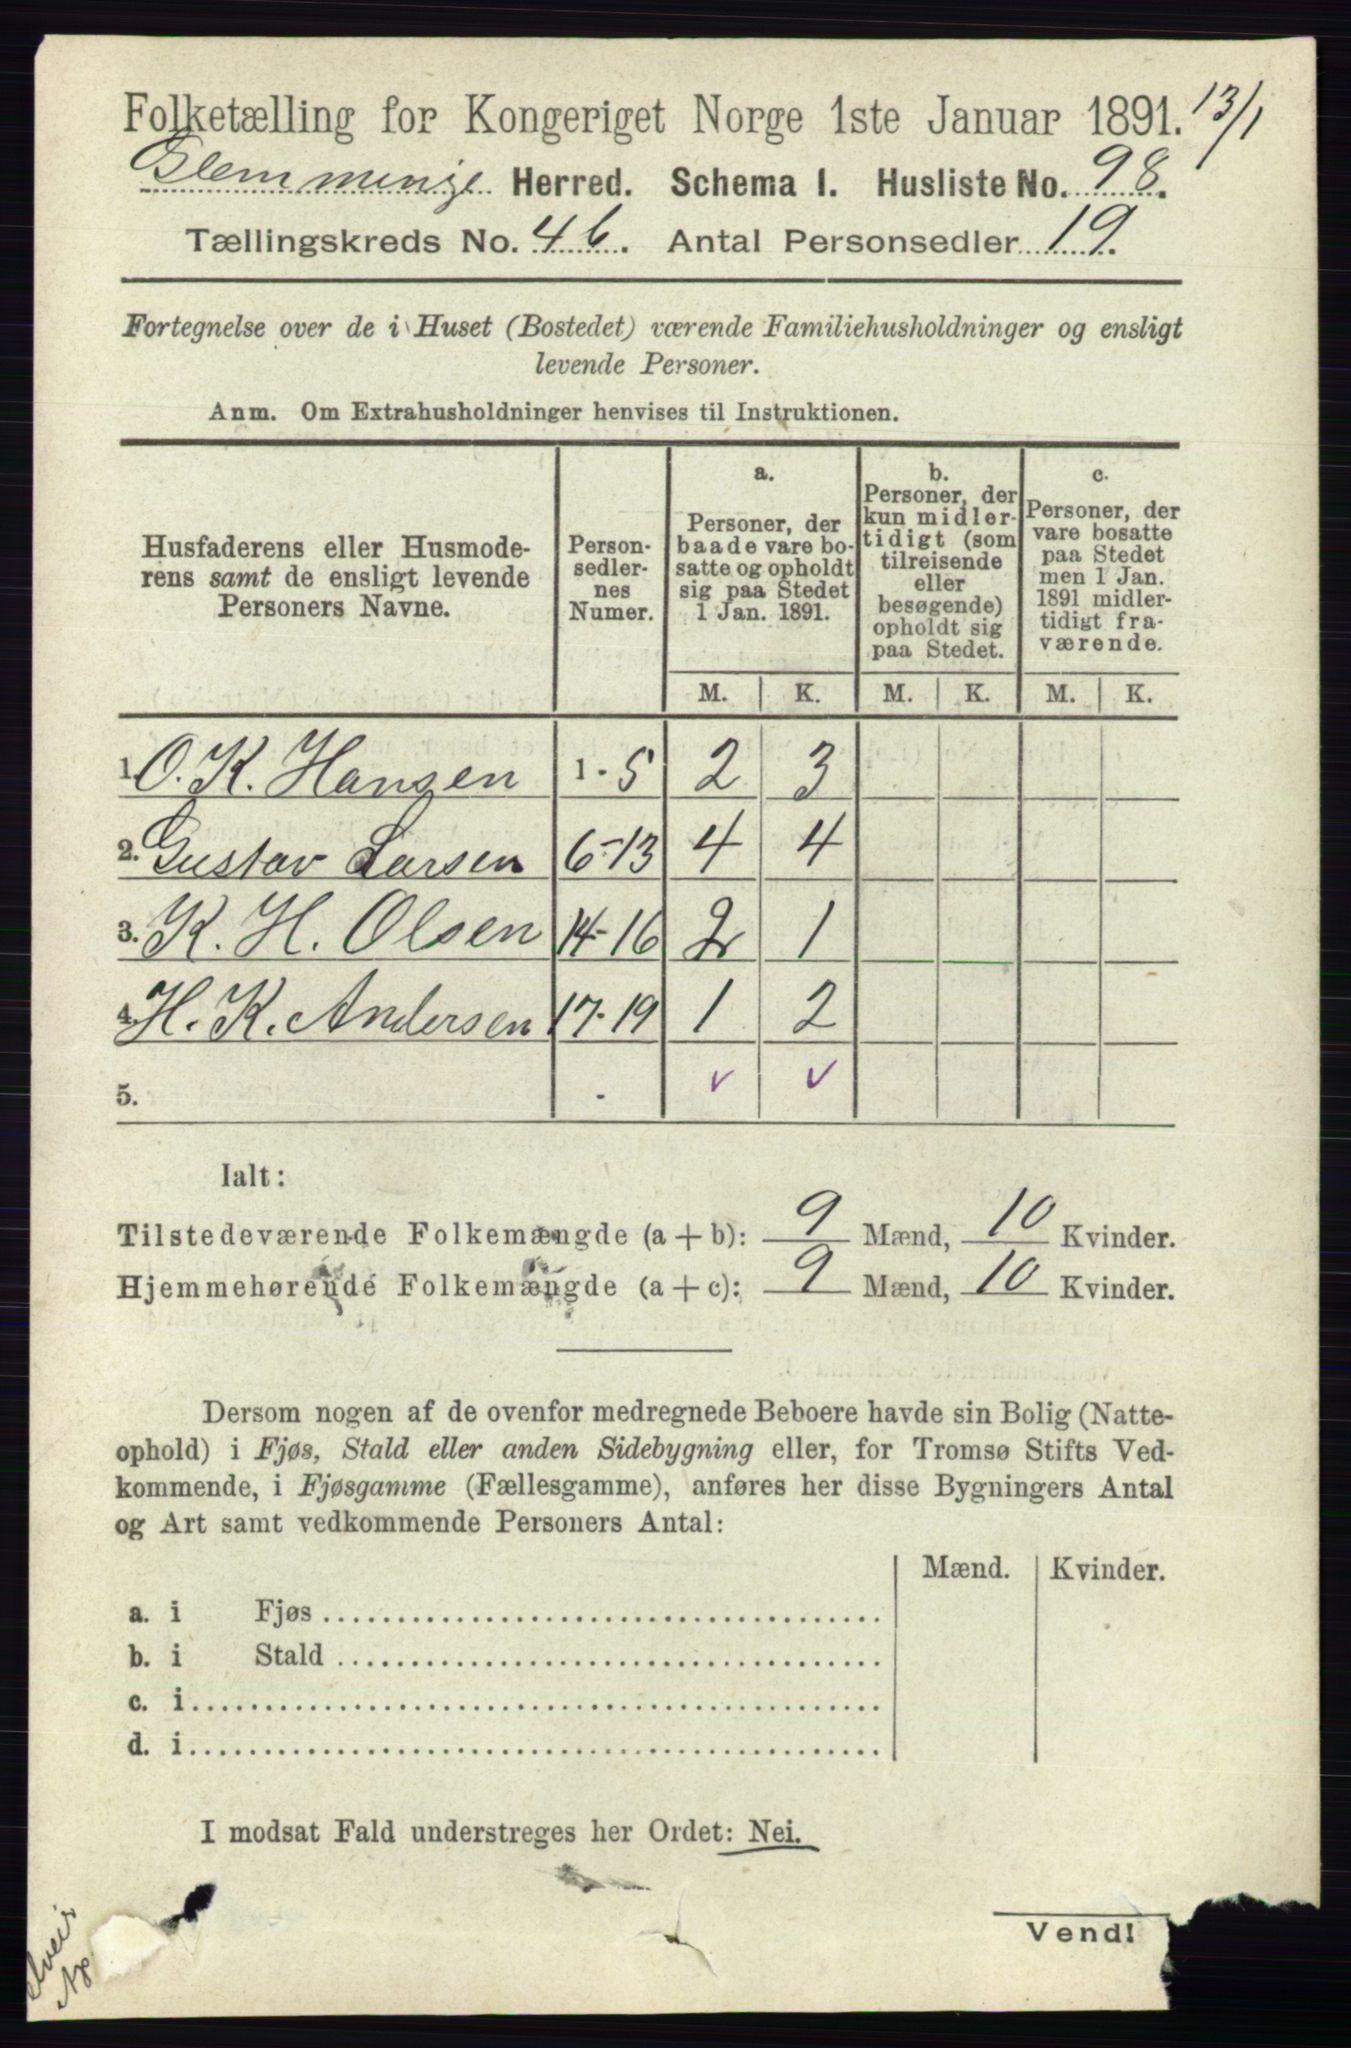 Folketælling for Kongeriget Norge 1ste Januar 1891. 13/1
Glemminge Herred. Schema I. Husliste No. 98.
Tællingskreds No. 46. Antal Personsedler 19.
Fortegnelse over de i Huset (Bostedet) værende Familiehusholdninger og ensligt
levende Personer.
Anm. Om Extrahusholdninger henvises til Instruktionen.
Husfaderens eller Husmode-
rens samt de ensligt levende
Personers Navne.
Person-
sedler-
nes
Numer.
a.
Personer, der
baade vare bo-
satte og opholdt
sig paa Stedet
1 Jan. 1891.
b.
Personer, der
kun midler-
tidigt (som
tilreisende
eller
besøgende)
opholdt sig
paa Stedet.
c.
Personer, der
vare bosatte
paa Stedet
men 1 Jan.
1891 midler-
tidigt fra-
værende.
M. K. M. K. M. K.
1. O. K. Hansen 1-5 2 3
2. Gustav Larsen 6-13 4 4
3. K. H. Olsen 14-16 2 1
4. H. K. Andersen 17-19 1 2
5. - v v
Ialt:
Tilstedeværende Folkemængde (a + b): 9 Mænd, 10 Kvinder.
Hjemmehørende Folkemængde (a + c): 9 Mænd, 10 Kvinder.
Dersom nogen af de ovenfor medregnede Beboere havde sin Bolig (Natte-
ophold) i Fjøs, Stald eller anden Sidebygning eller, for Tromsø Stifts Ved-
kommende, i Fjøsgamme (Fællesgamme), anføres her disse Bygningers Antal
og Art samt vedkommende Personers Antal:
Mænd. Kvinder.
a. i Fjøs
b. i Stald
c. i
d. i
I modsat Fald understreges her Ordet: Nei.
Vend!